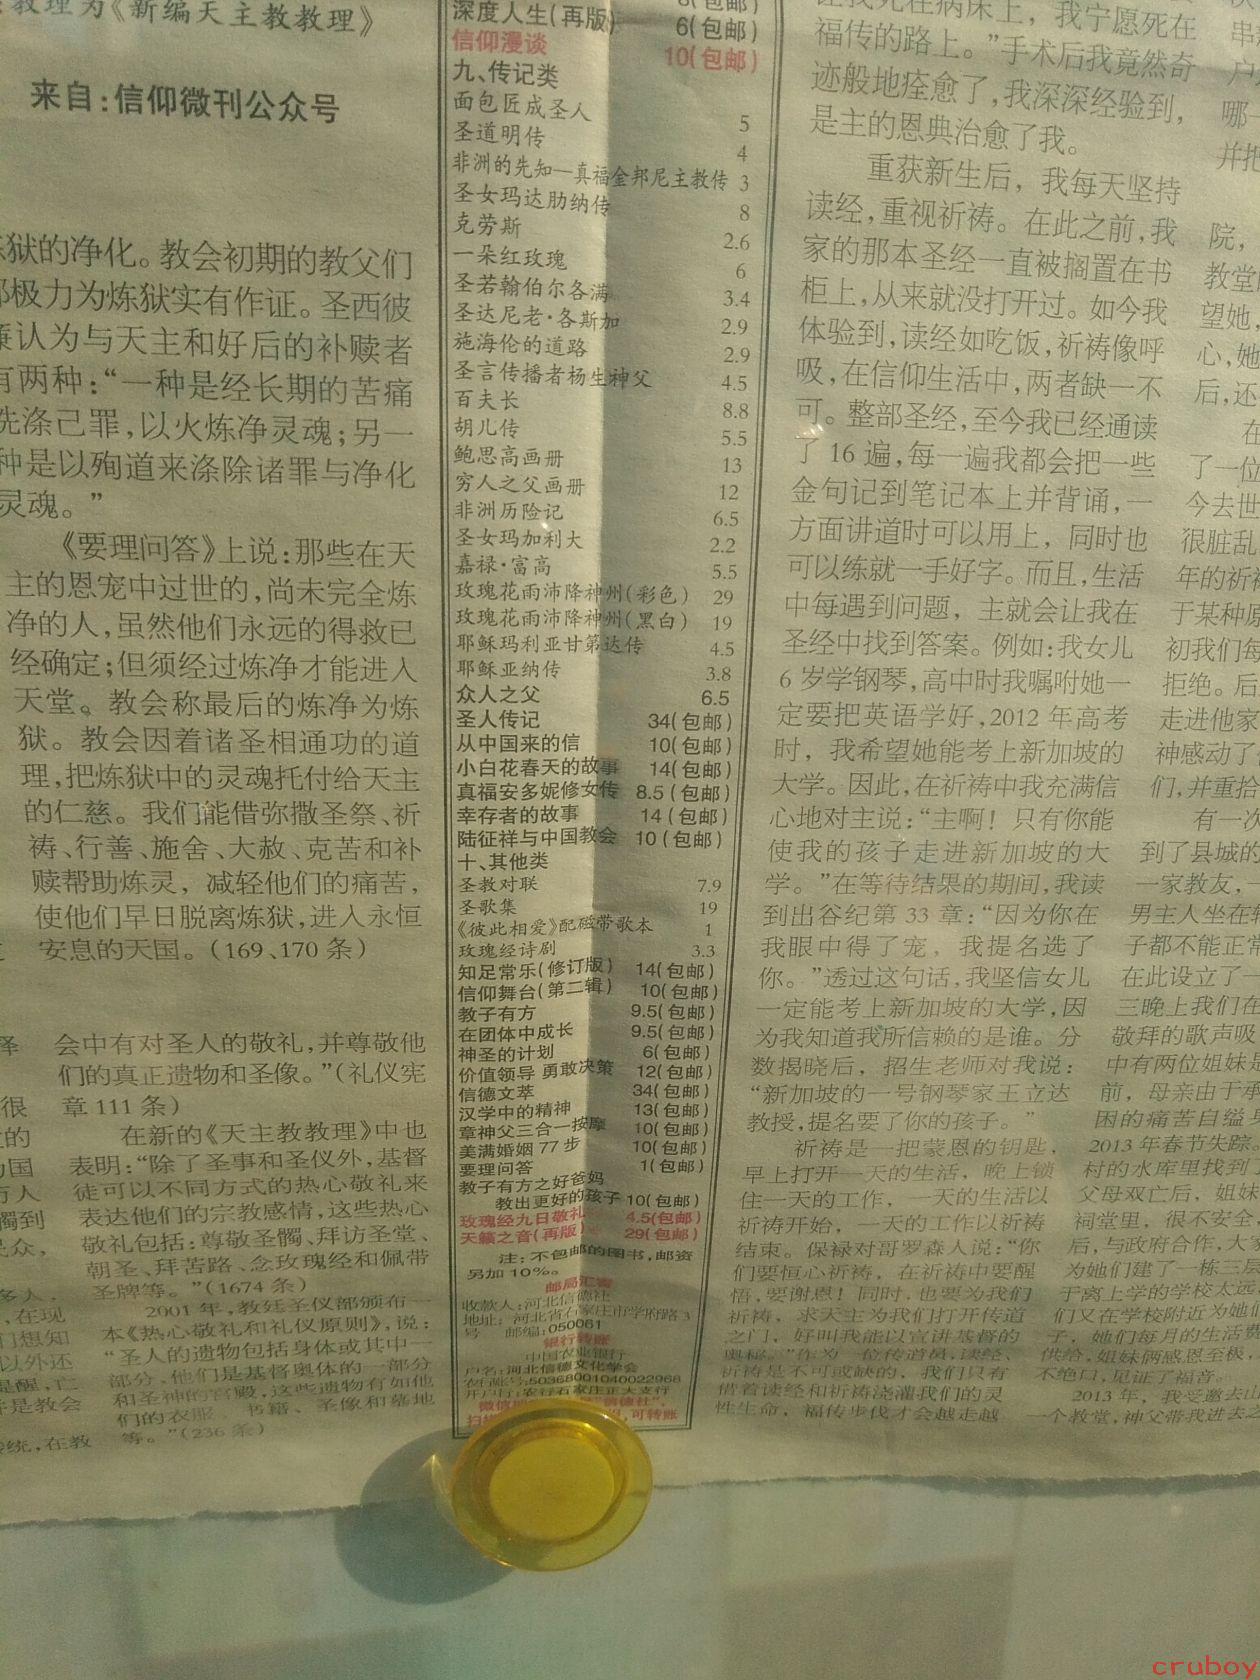 教理为《新编天主教教理》
来自:信仰微刊公众号
炼狱的净化。教会初期的教父们
极力为炼狱实有作证。圣西彼
廉认为与天主和好后的补赎者
有两种:“一种是经长期的苦痛
洗涤己罪,以火炼净灵魂;另一
种是以殉道来涤除诸罪与净化
灵魂。”
《要理问答》上说:那些在天
主的恩宠中过世的,尚未完全炼
净的人,虽然他们永远的得救已
经确定;但须经过炼净才能进入
天堂。教会称最后的炼净为炼
狱。教会因着诸圣相通功的道
理,把炼狱中的灵魂托付给天主
的仁慈。我们能借弥撒圣祭、祈
祷、行善、施舍、大赦、克苦和补
赎帮助炼灵,减轻他们的痛苦,
使他们早日脱离炼狱,进入永恒
安息的天国。(169、170条)
会中有对圣人的敬礼,并尊敬他
们的真正遗物和圣像。”(礼仪宪
章111条)
在新的《天主教教理》中也
表明:“除了圣事和圣仪外,基督
徒可以不同方式的热心敬礼来
表达他们的宗教感情,这些热心
敬礼包括:尊敬圣髑、拜访圣堂、
朝圣、拜苦路、念玫瑰经和佩带
圣牌等。”(1674条)
2001年,教廷圣仪部颁布一
本《热心敬礼和礼仪原则》,说:
“圣人的遗物包括身体或其中一
部分,他们是基督奥体的一部分
和圣神的宫殿,这些遗物有如他
们的衣服、书籍、圣像和墓地
等。”(236条)
深度人生(再版) 6(包邮)
信仰漫谈 10(包邮)
九、传记类
面包匠成圣人 5
圣道明传 4
非洲的先知—真福金邦尼主教传 3
圣女玛达肋纳传 8
克劳斯 2.6
一朵红玫瑰 6
圣若翰伯尔各满 3.4
圣达尼老·各斯加 2.9
施海伦的道路 2.9
圣言传播者杨生神父 4.5
百夫长 8.8
胡儿传 5.5
鲍思高画册 13
穷人之父画册 12
非洲历险记 6.5
圣女玛加利大 2.2
嘉禄·富高 5.5
玫瑰花雨沛降神州(彩色) 29
玫瑰花雨沛降神州(黑白) 19
耶稣玛利亚甘第达传 4.5
耶稣亚纳传 3.8
众人之父 6.5
圣人传记 34(包邮)
从中国来的信 10(包邮)
小白花春天的故事 14(包邮)
真福安多妮修女传 8.5(包邮)
幸存者的故事 14(包邮)
陆征祥与中国教会 10(包邮)
十、其他类
圣教对联 7.9
圣歌集 19
《彼此相爱》配磁带歌本 1
玫瑰经诗剧 3.3
知足常乐(修订版) 14(包邮)
信仰舞台(第二辑) 10(包邮)
教子有方 9.5(包邮)
在团体中成长 9.5(包邮)
神圣的计划 6(包邮)
价值领导 勇敢决策 12(包邮)
信德文萃 34(包邮)
汉学中的精神 13(包邮)
章神父三合一按摩 10(包邮)
美满婚姻77步 10(包邮)
要理问答 1(包邮)
教子有方之好爸妈
教出更好的孩子 10(包邮)
玫瑰经九日敬礼 4.5(包邮)
天籁之音(再版) 29(包邮)
注:不包邮的图书,邮资
另加10%。
邮局汇寄
收款人:河北信德社
地址:河北省石家庄市学府路3
号 邮编:050061
银行转账
中国农业银行
户名:河北信德文化学会
农行账号:50368001040022968
开户行:农行石家庄正大支行
可转账
让我死在病床上,我宁愿死在
福传的路上。”手术后我竟然奇
迹般地痊愈了,我深深经验到,
是主的恩典治愈了我。
重获新生后,我每天坚持
读经,重视祈祷。在此之前,我
家的那本圣经一直被搁置在书
柜上,从来就没打开过。如今我
体验到,读经如吃饭,祈祷像呼
吸,在信仰生活中,两者缺一不
可。整部圣经,至今我已经通读
了16遍,每一遍我都会把一些
金句记到笔记本上并背诵,一
方面讲道时可以用上,同时也
可以练就一手好字。而且,生活
中每遇到问题,主就会让我在
圣经中找到答案。例如:我女儿
6岁学钢琴,高中时我嘱咐她一
定要把英语学好,2012年高考
时,我希望她能考上新加坡的
大学。因此,在祈祷中我充满信
心地对主说:“主啊!只有你能
使我的孩子走进新加坡的大
学。”在等待结果的期间,我读
到出谷纪第33章:“因为你在
我眼中得了宠,我提名选了
你。”透过这句话,我坚信女儿
一定能考上新加坡的大学,因
为我知道我所信赖的是谁。分
数揭晓后,招生老师对我说:
“新加坡的一号钢琴家王立达
教授,提名要了你的孩子。”
祈祷是一把蒙恩的钥匙,
早上打开一天的生活,晚上锁
住一天的工作,一天的生活以
祈祷开始,一天的工作以祈祷
结束。保禄对哥罗森人说:“你
们要恒心祈祷,在祈祷中要醒
悟,要谢恩!同时,也要为我们
祈祷,求天主为我们打开传道
之门,好叫我能以宣讲基督的
奥秘。”作为一位传道员,读经、
祈祷是不可或缺的,我们只有
借着读经和祈祷浇灌我们的灵
性生命,福传步伐才会越走越
串
户
哪一
并把
院,
教堂
望她,
心,她
后,还
在
了一位
今去世
很脏乱
年的祈祷
于某种原
初我们每
拒绝。后
走进他家
神感动了
们,并重拾
有一次
到了县城的
一家教友,一
男主人坐在轮
子都不能正常
在此设立了一
三晚上我们在
敬拜的歌声吸
中有两位姐妹是
前,母亲由于承
困的痛苦自缢
2013年春节失踪。
村的水库里找到了
父母双亡后,姐妹
祠堂里,很不安全
后,与政府合作,大家
为她们建了一栋三层
于离上学的学校太远
们又在学校附近为她们
子,她们每月的生活费
供给,姐妹俩感恩至极,
不绝口,见证了福音。
2013年,我受邀去山
一个教堂,神父带我进去之
cruboy